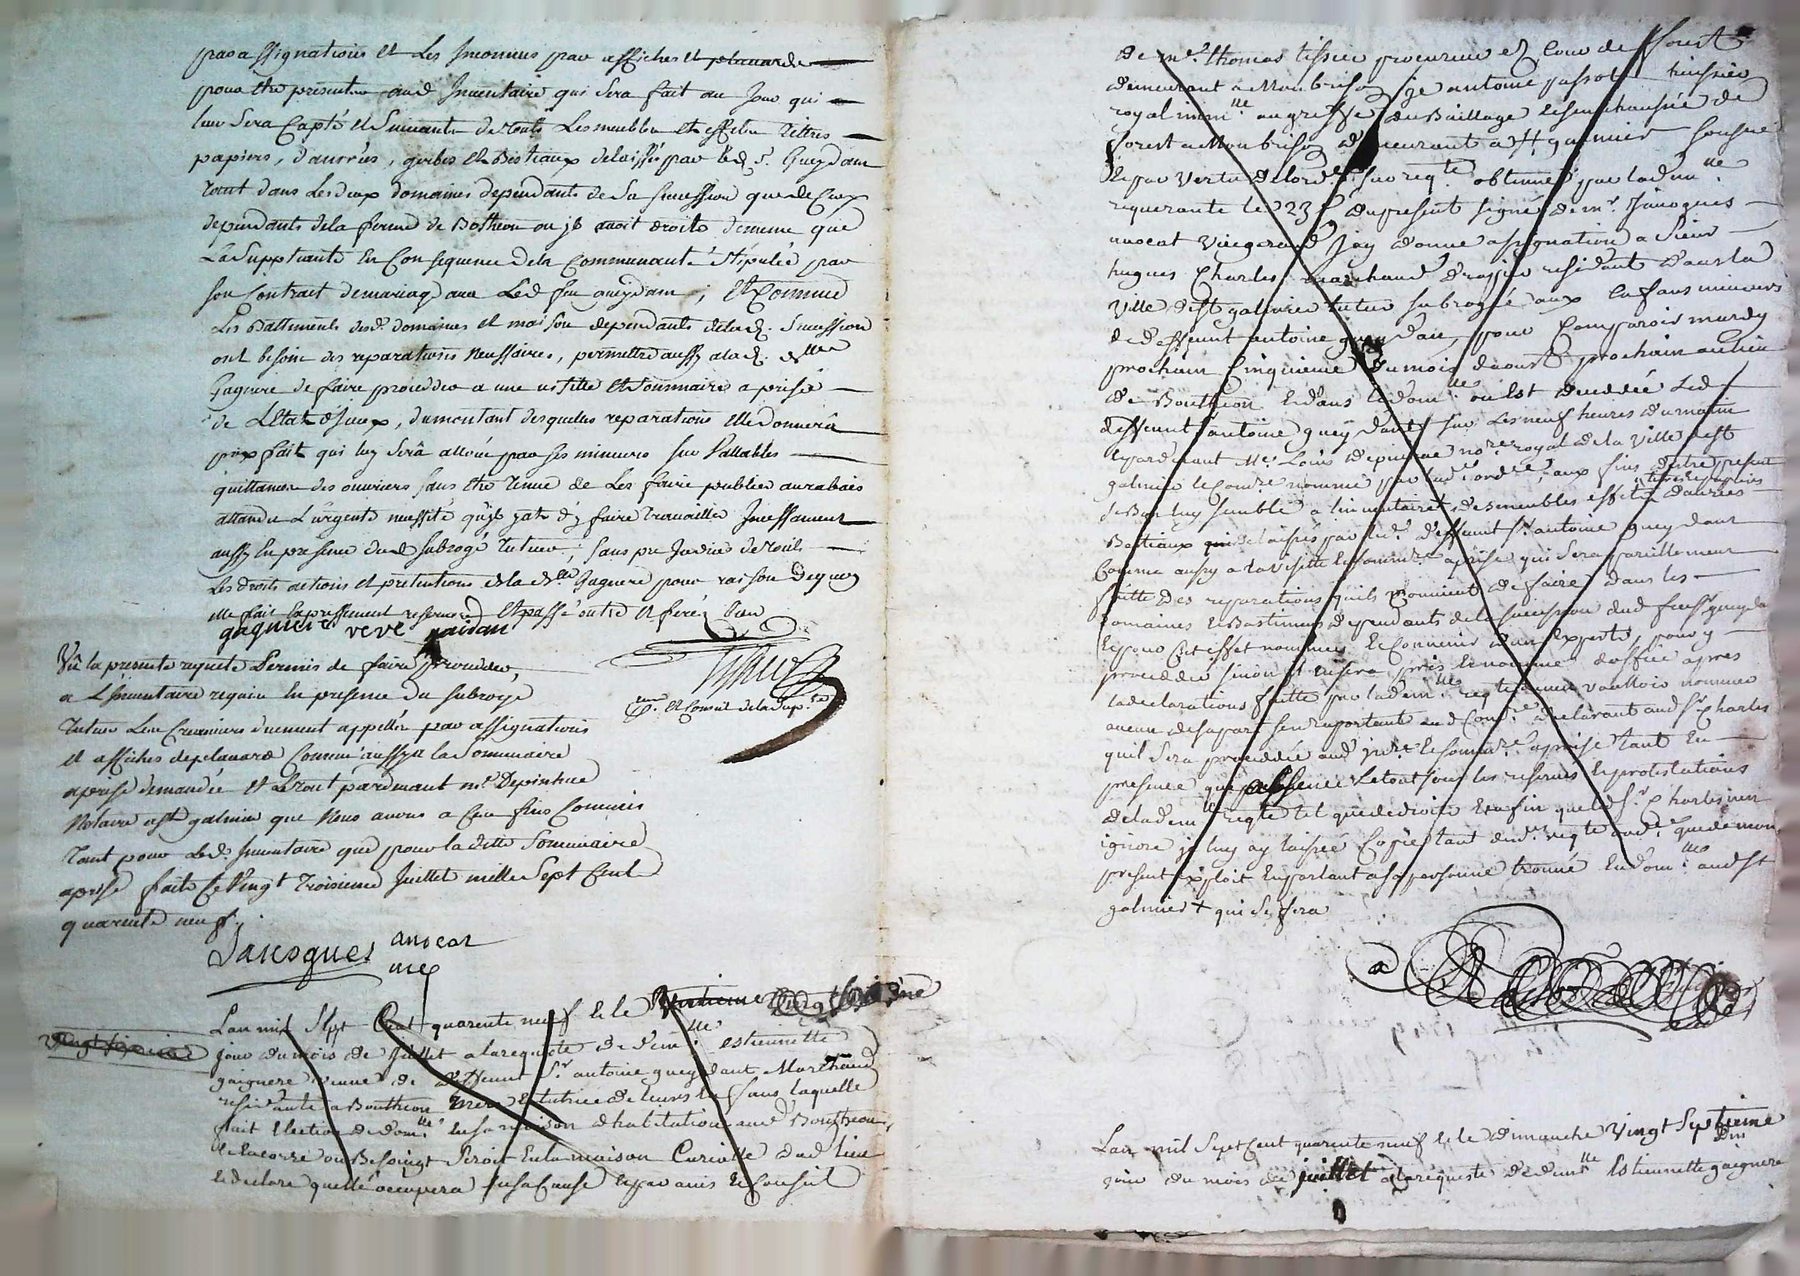 par assignations et Les Inconnus par affiches et placards
pour être présents aud Inventaire qui Sera fait au Jour qui
leur Sera Capté et Suivant de touts Les meubles et effets titres
papiers, danrées, gerbes et Bestiaux delaissés par led. Sr. Gueydan
tout dans Les deux domaines dependants de Sa Succession que de Ceux
dependants dela ferme de Botheon ou il avoit droit, demême que
La Suppliante En Consequence dela Communauté Stipulée par
Son Contrat demariage avec Led feu Gueydan; Et Comme
Les Battiments desd. domaines et maison dependants delad. Succession
ont besoin des reparations neussaires, permettre aussy alad. dlle
Gagnere de faire proceder a une visitte et Sommaire aprise
de L'Etat d'Iceux, du montant desquelles reparations elle donnera
prix fait qui luy Sera alloué par Ses mineurs Sur Vallables
quittances des ouvriers Sans être tenue de Les faire publier aurabais
attendu L'urgente neussité qu'il y at d'y faire travailler Incessament
aussy En presence dud Subrogé tuteur; Sans prejudice de touts
Les droits actions et pretentions dela dlle Gagnere pour raison dequoy
elle fait Expressement reserve Et passé outre et ferés bien
gagniere veve gaidan
Vû la presente requete Permis de faire proceder
a L'Inventaire requis En presence du Subrogé
tuteur Les Creanciers duement appellés par assignations
et affiches de placard Comm'aussy a la Sommaire
aprise demandée et Le tout pardevant me. Depinhac
Notaire a St galmier que Nous avons a Ces fins Commis
tant pour Led. Inventaire que pour la ditte Sommaire
aprise fait Ce Vingt troisieme Juillet mille Sept Cent
quarente neuf.
pr. et Conseil dela Sup.te
Jancognes avocat
L'an mil Sept Cent quarente neuf & le
jour du mois de Juillet alarequete de dem.lle estiennette
gaignere veuve de deffunt Sr. antoine gueydant Marchand
residante a Bouthion mere & tutrice de leurs Enfans laquelle
fait Election de dom.lle en sa maison d'habitation aud Bouthion,
& Encorre ou Besoingt Seroit En la maison Curialle dud lieu
& declare quelle occupera En sa Cause & par avis & Conseil
de me. thomas tissier procureur ez Cour de forest
demeurant a Monbrison, je antoine passot huissier
royal imm.lle au greffe du Baillage & Senechaussée de
forest a Monbrison demeurant a St galmier Soussigné
& par vertu de lord.e Sur req.te obtenue par lad dem.lle
requerante le 23e. du present Signé de mr. Jancognes
avocat j'ay donné assignation a Sieur
hugues Charles marchand residant dans la
ville de St galmier tuteur Subrogé aux Enfans mineurs
de deffunt antoine gueydan, pour Comparoir mardy
prochain Cinquieme du mois daoust prochain au lieu
de Bouthion & dans le dom.lle ou Est decedé Led
deffunt antoine gueydant Sur Les neuf heures du matin
& pardevant Me. Louis Depinhac no.re royal de la Ville de St
galmier & Com.re nommé par lad. ord.ce, aux fins d'etre present
Si Bon luy Semble a l'inventaire des meubles effets danrées
titres & papiers
Bestiaux delaissés par led. deffunt Sr. antoine gueydant
Comme aussy a la visitte & Somm.re aprise qui Sera pareillement
faitte des reparations quils Conviennent de faire dans les
domaines & Bastiments dependants de la Succession dud feu Sr. gueydan
& pour Cet effet nommer & Convenir d'un Experts, pour y
proceder sinon & nommé d'office apres
la declarations faitte par lad dem.lle req.te vouloir nommer
aucun de sa part S'en raportant aud Com.re declarant aud Sr. Charles
quil Sera proceddé aud inv.re & Somm.re aprise tant En
presence que absence & le tout Sous les reserves & protestations
de lad dem.lle req.te tel que de droit & a fin que led Sr. Charles n'en
ignore je luy ay laissée Copie tant de lad. req.te ord.ce que de mon
present Exploit En parlant a Sa personne trouvé En dom.lle aud St
galmier + qui Suffira
L'an mil Sept Cent quarente neuf & le dimanche Vingt Septieme
jour du mois de juillet alarequeste de dem.lle Estiennette gaignere